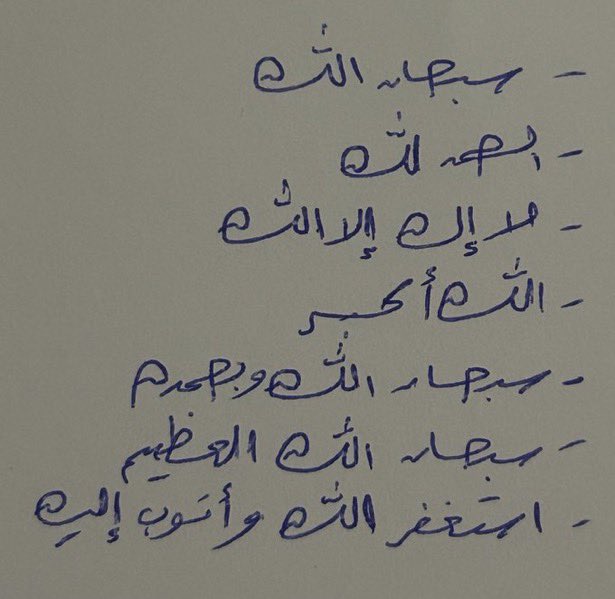 - سبحان الله
- الحمد لله
- لا إله إلا الله
- الله أكبر
- سبحان الله وبحمده
- سبحان الله العظيم
- استغفر الله وأتوب إليه